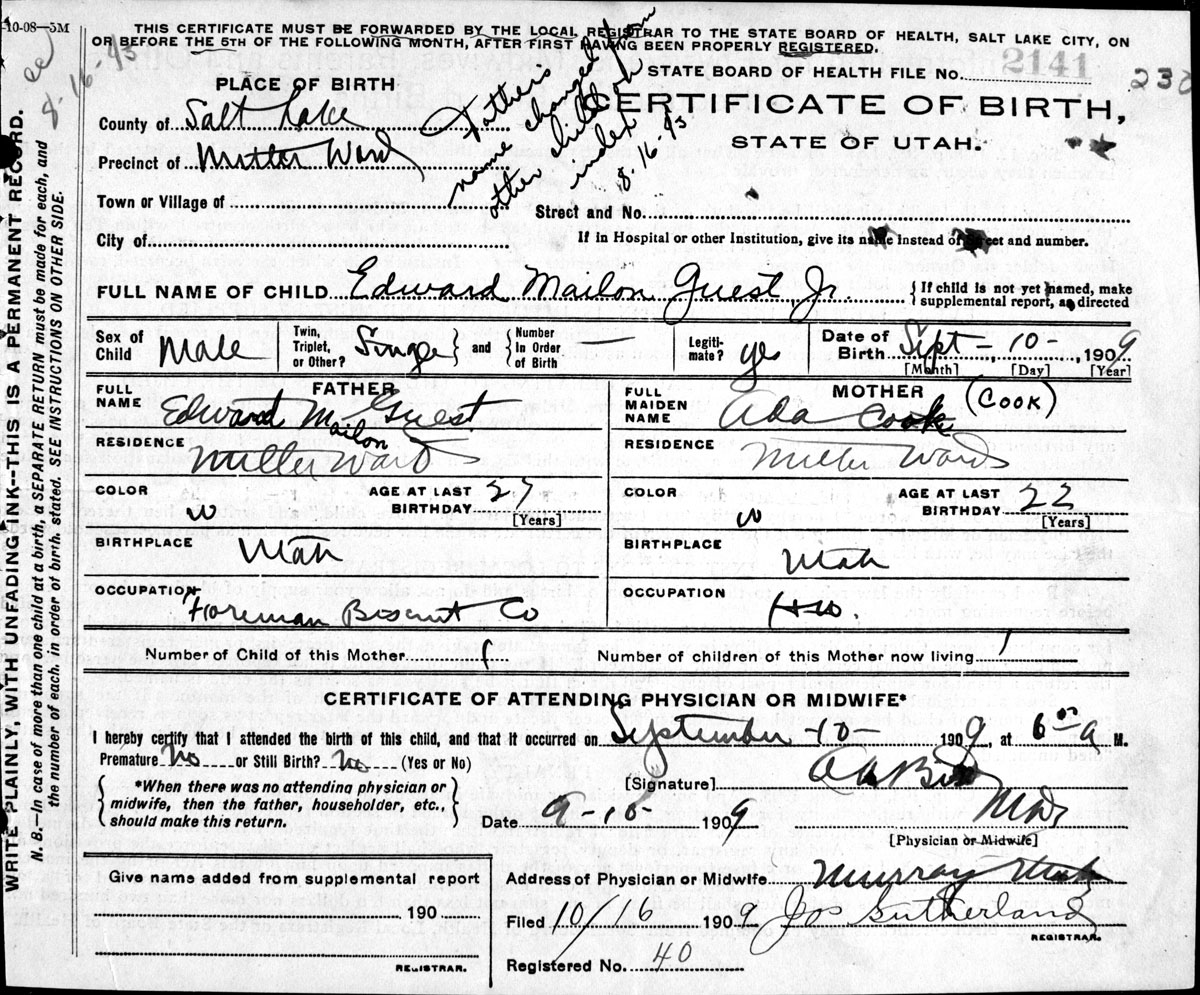 -10-08—5M
THIS CERTIFICATE MUST BE FORWARDED BY THE LOCAL REGISTRAR TO THE STATE BOARD OF HEALTH, SALT LAKE CITY, ON
OR BEFORE THE 5TH OF THE FOLLOWING MONTH, AFTER FIRST HAVING BEEN PROPERLY REGISTERED.
8·16·43
Father's
name changed from
other child on
index
8.16.43
STATE BOARD OF HEALTH FILE No. 2141
230
PLACE OF BIRTH
CERTIFICATE OF BIRTH,
STATE OF UTAH.
County of Salt Lake
Precinct of Miller Ward
Town or Village of
Street and No.
City of
If in Hospital or other Institution, give its name instead of street and number.
FULL NAME OF CHILD Edward Mailon Guest, Jr. { If child is not yet named, make
supplemental report, as directed
Sex of Child Male
Twin, Triplet, or Other? Single } and { Number In Order of Birth —
Legiti-mate? yes
Date of Birth Sept - 10 - 1909
[Month] [Day] [Year]
FATHER
FULL NAME Edward Mailon Guest
RESIDENCE Miller Ward
COLOR W AGE AT LAST BIRTHDAY 27 [Years]
BIRTHPLACE Utah
OCCUPATION Foreman Biscuit Co
MOTHER
FULL MAIDEN NAME Ada Cook (COOK)
RESIDENCE Miller Ward
COLOR W AGE AT LAST BIRTHDAY 22 [Years]
BIRTHPLACE Utah
OCCUPATION HW.
Number of Child of this Mother 1 Number of children of this Mother now living 1
CERTIFICATE OF ATTENDING PHYSICIAN OR MIDWIFE*
I hereby certify that I attended the birth of this child, and that it occurred on September -10- 1909, at 6 00 a M.
Premature No or Still Birth? No (Yes or No)
{ *When there was no attending physician or
midwife, then the father, householder, etc.,
should make this return. }
[Signature]
Date 9-10- 1909
[Physician or Midwife]
Give name added from supplemental report
190
REGISTRAR.
Address of Physician or Midwife Murray Utah
Filed 10/16 1909 Jos Sutherland
REGISTRAR.
Registered No. 40
WRITE PLAINLY, WITH UNFADING INK---THIS IS A PERMANENT RECORD.
N. B.—In case of more than one child at a birth, a SEPARATE RETURN must be made for each, and
the number of each, in order of birth, stated. SEE INSTRUCTIONS ON OTHER SIDE.